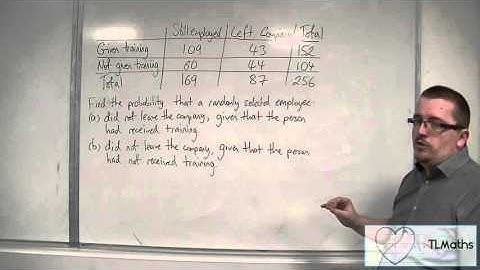 Still employed Left Company Total
Given training 109 43 152
Not given training 60 44 104
Total 169 87 256
Find the probability that a randomly selected employee:
(a) did not leave the company, given that the person
had received training.
(b) did not leave the company, given that the person
had not received training.
TLMaths